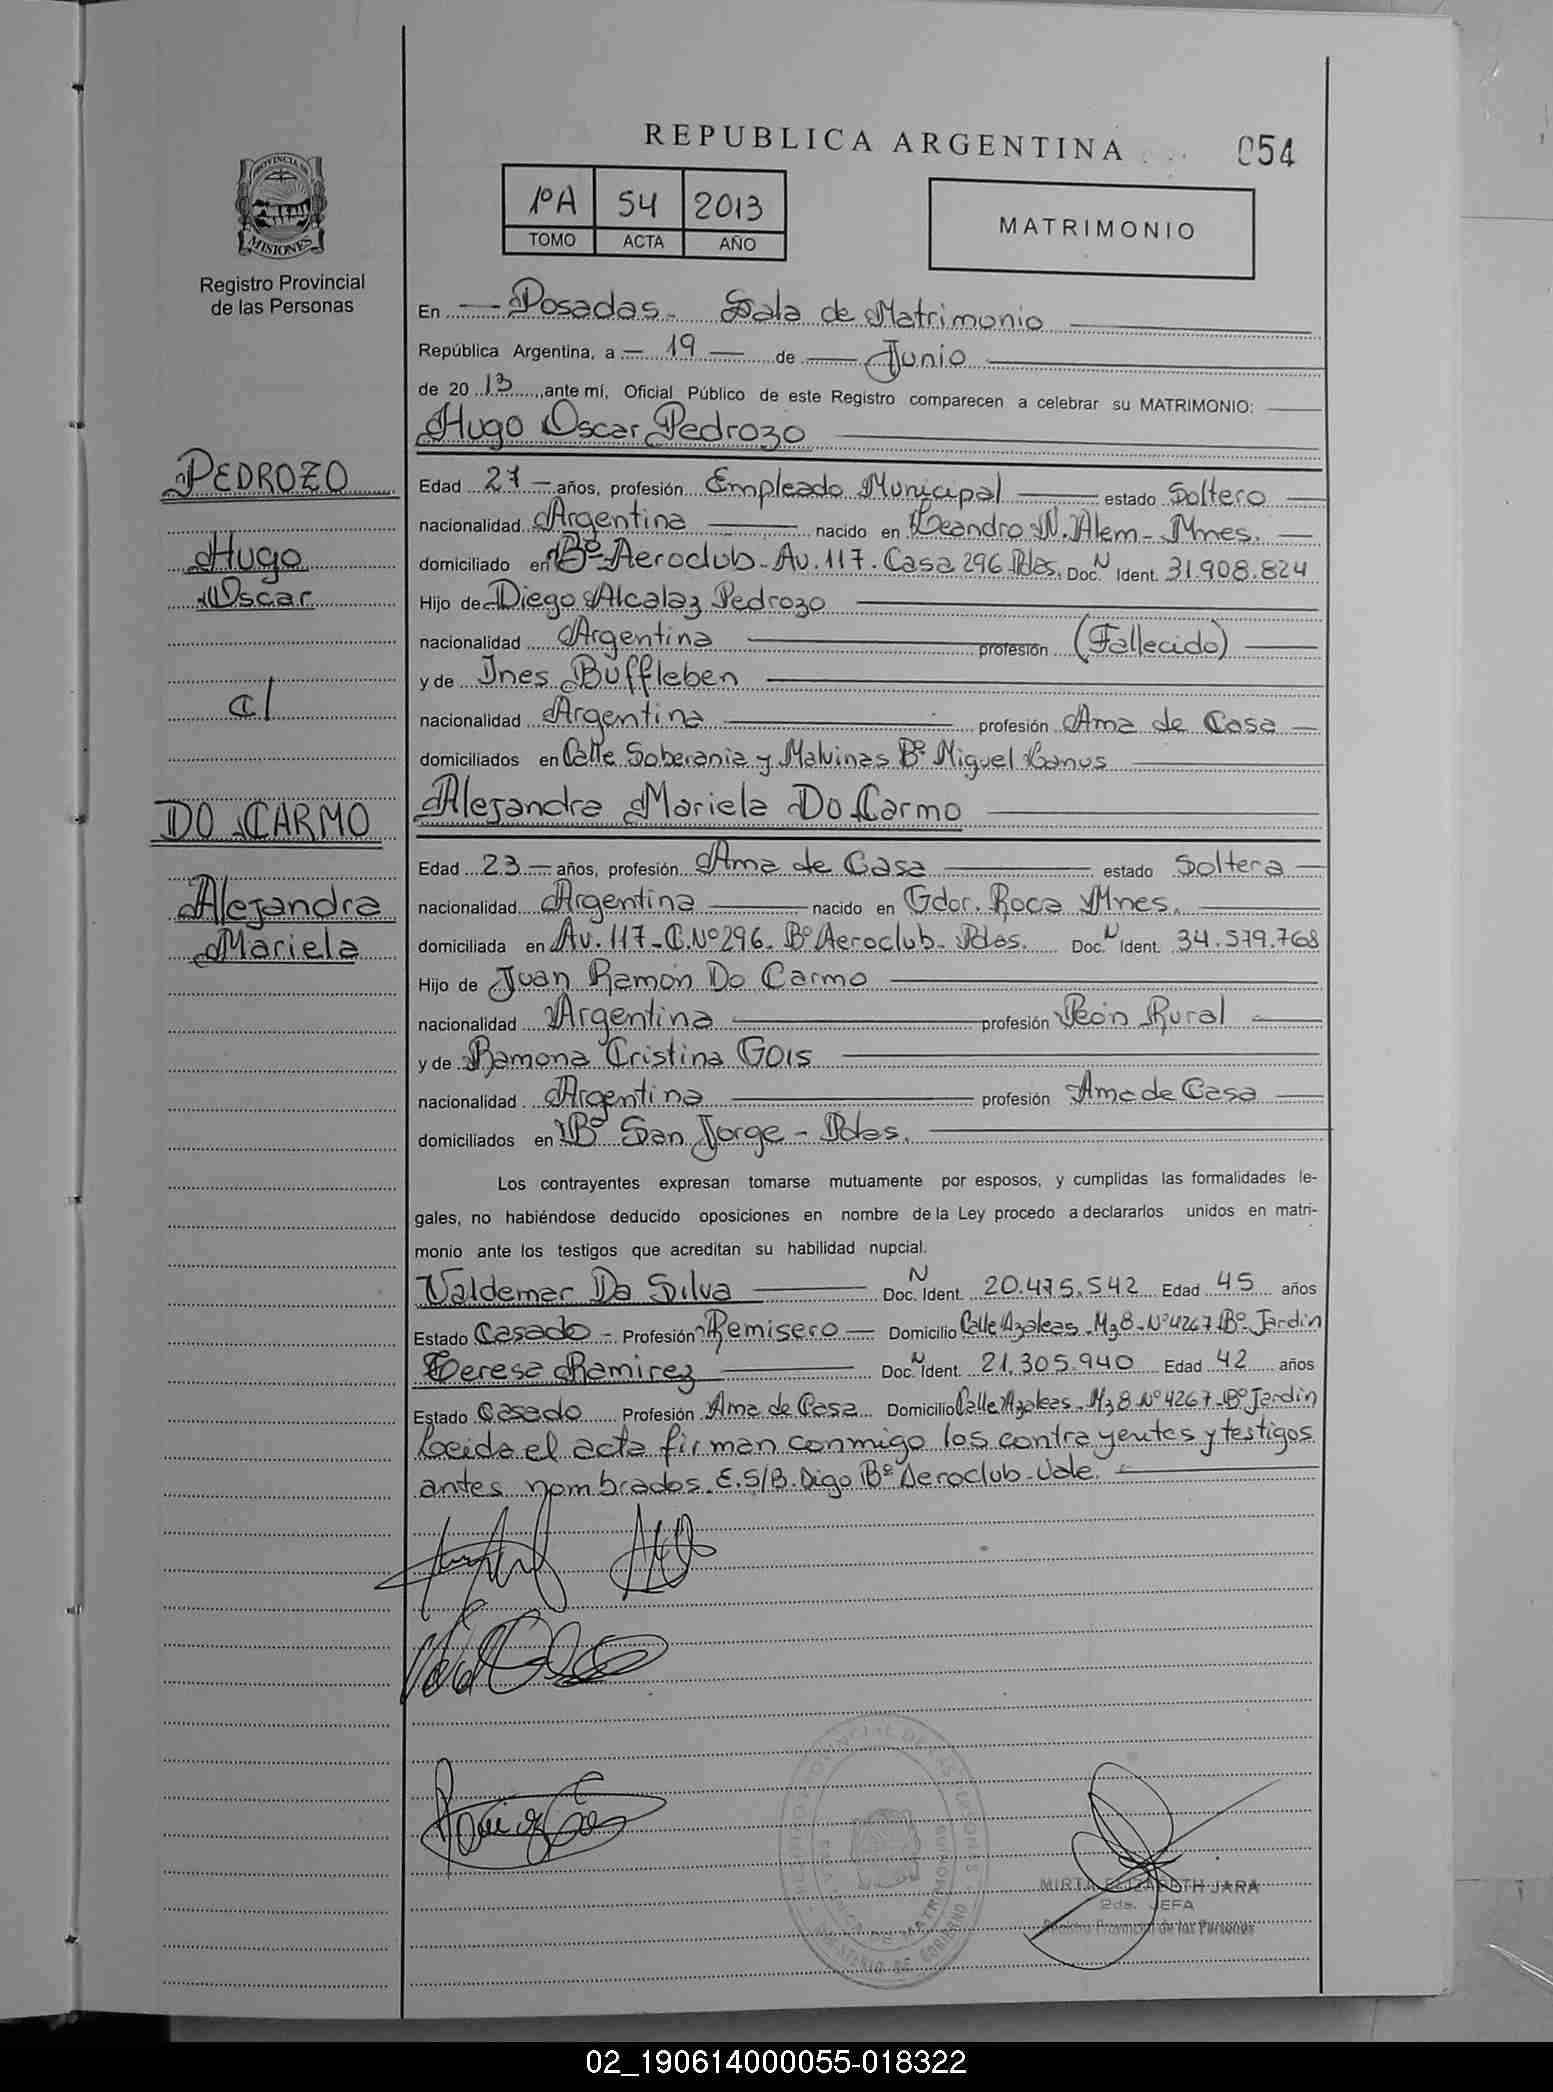 REPUBLICA ARGENTINA
054
1ºA 54 2013
TOMO ACTA AÑO
MATRIMONIO
PROVINCIA DE
MISIONES
Registro Provincial
de las Personas
En Posadas - Sala de Matrimonio
República Argentina, a - 19 - de Junio
de 2013, ante mí, Oficial Público de este Registro comparecen a celebrar su MATRIMONIO:
Hugo Oscar Pedrozo
PEDROZO
Hugo
Oscar
c/
DO CARMO
Alejandra
Mariela
Edad 27 - años, profesión Empleado Municipal estado Soltero
nacionalidad Argentina nacido en Leandro N. Alem - Mnes.
domiciliado en Bº Aeroclub - Av. 117 - Casa 296 Pdas. Doc. N Ident. 31.908.824
Hijo de Diego Alcalaz Pedrozo
nacionalidad Argentina profesión (Fallecido)
y de Ines Buffleben
nacionalidad Argentina profesión Ama de Casa
domiciliados en Calle Soberania y Malvinas Bº Miguel Lanus
Alejandra Mariela Do Carmo
Edad 23 - años, profesión Ama de Casa estado Soltera
nacionalidad Argentina nacido en Gdor. Roca Mnes.
domiciliada en Av. 117 - C. Nº 296 - Bº Aeroclub - Pdas. Doc. N Ident. 34.579.768
Hijo de Juan Ramón Do Carmo
nacionalidad Argentina profesión Peón Rural
y de Ramona Cristina Gois
nacionalidad Argentina profesión Ama de Casa
domiciliados en Bº San Jorge - Pdas.
Los contrayentes expresan tomarse mutuamente por esposos, y cumplidas las formalidades le-
gales, no habiéndose deducido oposiciones en nombre de la Ley procedo a declararlos unidos en matri-
monio ante los testigos que acreditan su habilidad nupcial.
Valdemar Da Silva Doc. N Ident. 20.475.542 Edad 45 años
Estado Casado - Profesión Remisero - Domicilio Calle Azaleas - Mz 8 - Nº 4267 Bº Jardin
Teresa Ramirez Doc. N Ident. 21.305.940 Edad 42 años
Estado Casado Profesión Ama de Casa Domicilio Calle Azaleas - Mz 8 Nº 4267 - Bº Jardin
Leida el acta firman conmigo los contrayentes y testigos
antes nombrados. E.S/B. Digo Bº Aeroclub - Vale.
MIRTA ELIZABETH JARA
2da. JEFA
Registro Provincial de las Personas
02_190614000055-018322